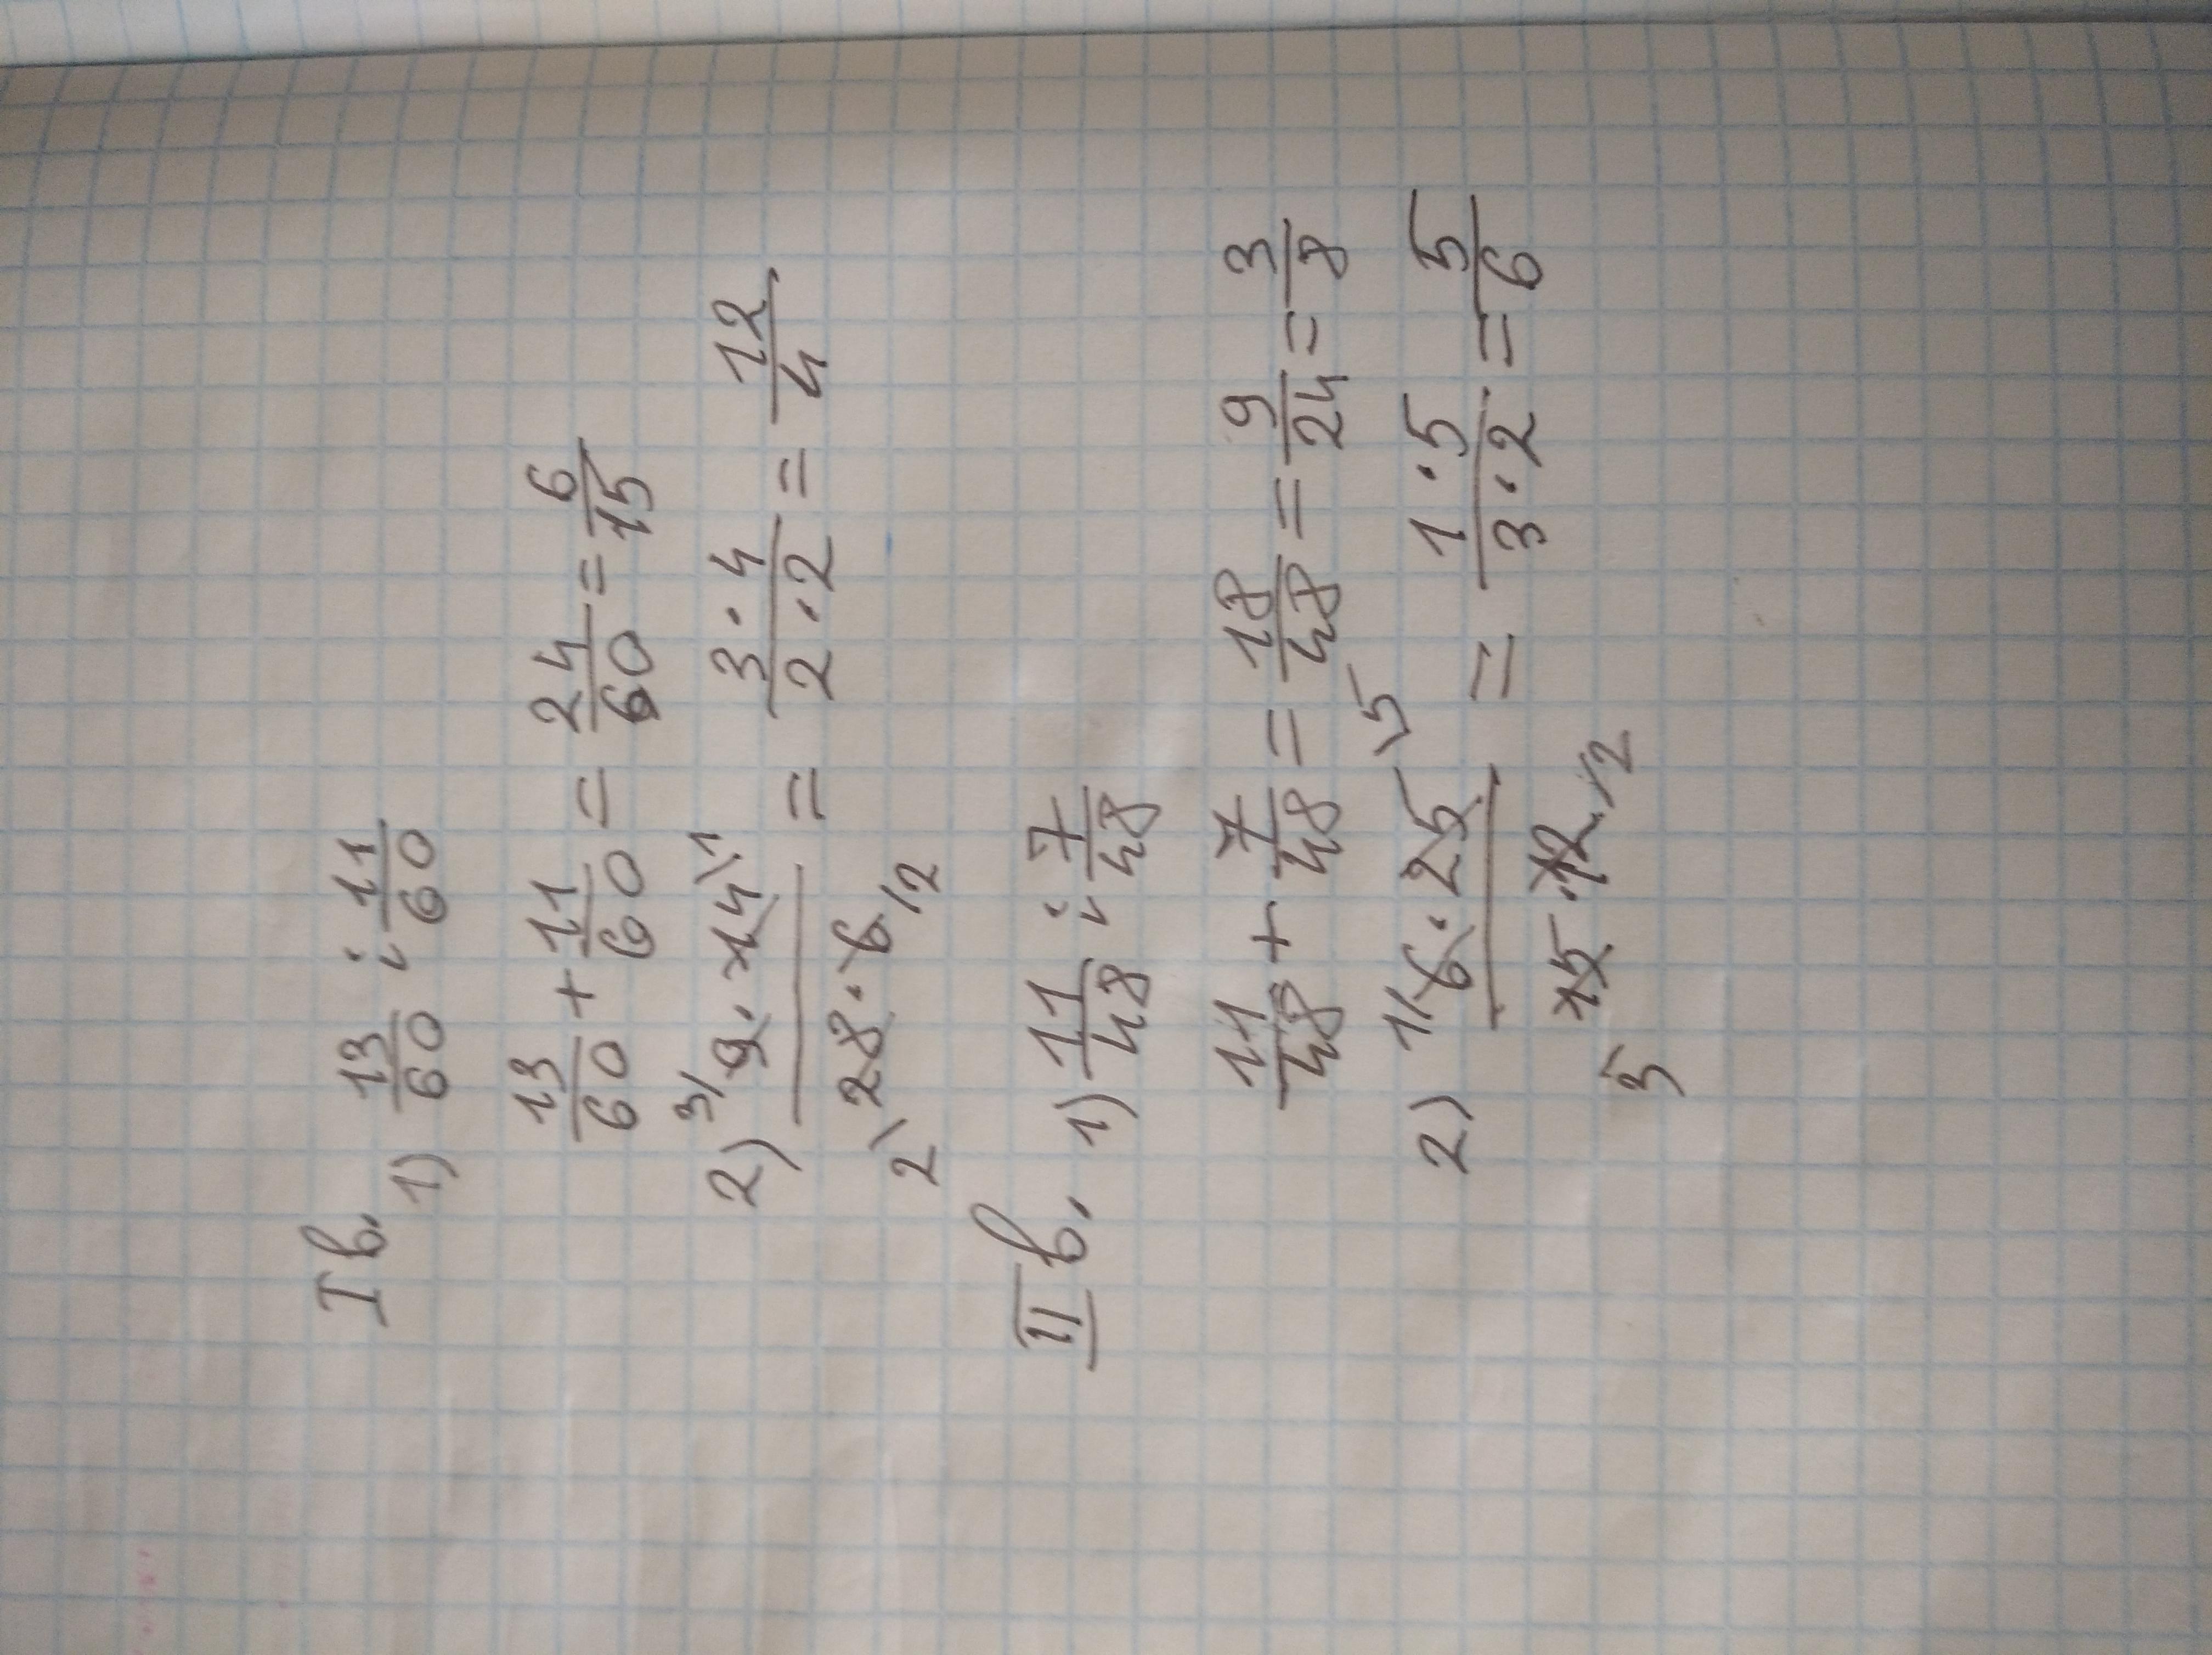 I в.
1) 13/60 ; 11/60
13/60 + 11/60 = 24/60 = 6/15
2) 3/ 9 · 14 \1 / 2\ 28 · 6 /2 = 3 · 4 / 2 · 2 = 12/4
II в. 1) 11/48 ; 7/48
11/48 + 7/48 = 18/48 = 9/24 = 3/8
2) 1/ 6 · 25 \5 / 3 15 · 12 /2 = 1 · 5 / 3 · 2 = 5/6